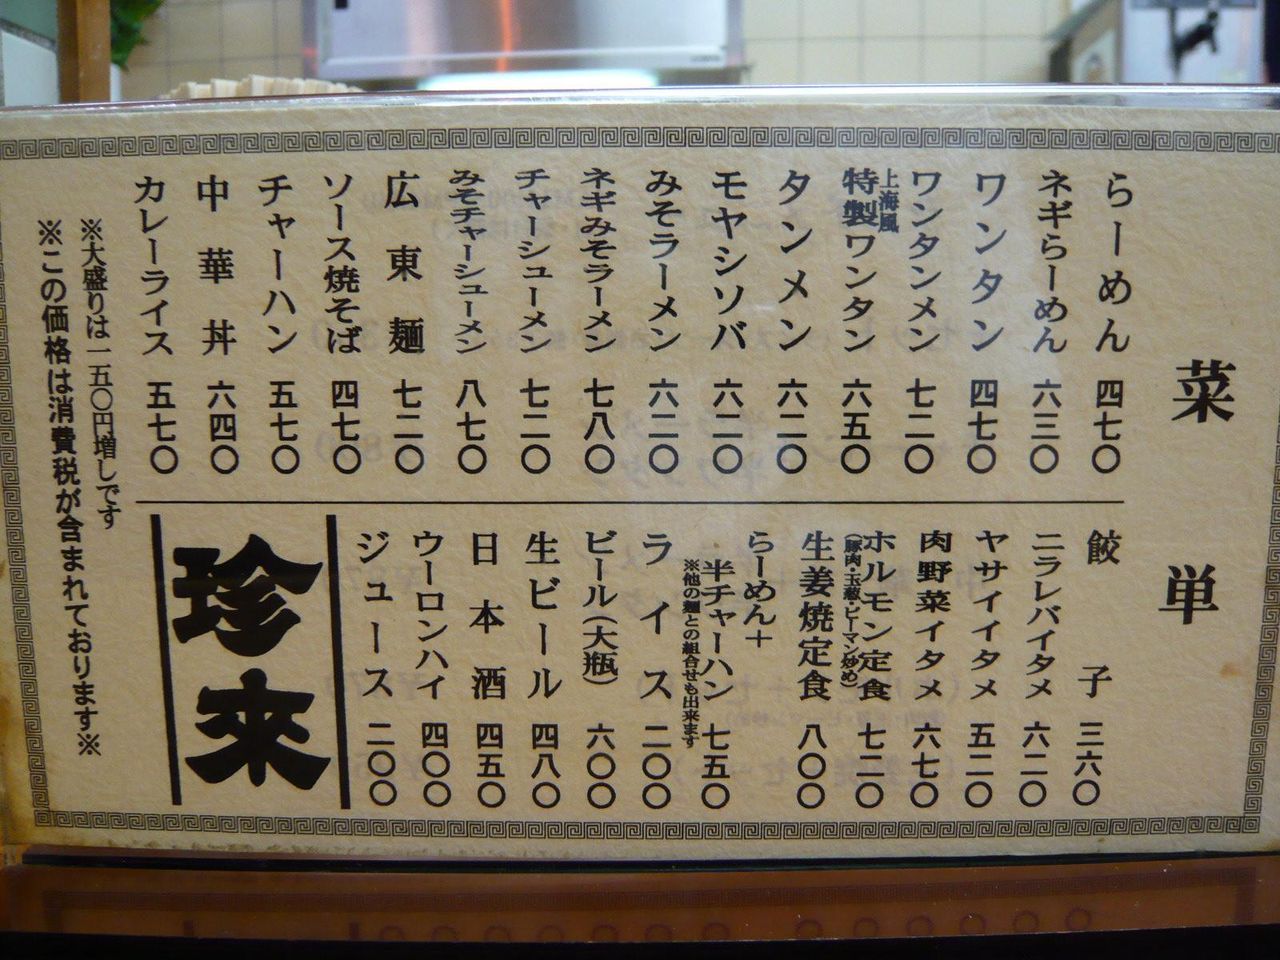 菜単
らーめん 四七〇
ネギらーめん 六三〇
ワンタン 四七〇
ワンタンメン 七二〇
上海風
特製ワンタン 六五〇
タンメン 六二〇
モヤシソバ 六二〇
みそラーメン 六二〇
ネギみそラーメン 七八〇
チャーシューメン 七二〇
みそチャーシューメン 八七〇
広東麺 七二〇
ソース焼そば 四七〇
チャーハン 五七〇
中華丼 六四〇
カレーライス 五七〇
餃子 三六〇
ニラレバイタメ 六二〇
ヤサイイタメ 五二〇
肉野菜イタメ 六七〇
ホルモン定食 七二〇
(豚肉・玉葱・ピーマン炒め)
生姜焼定食 八〇〇
らーめん+
半チャーハン 七五〇
※他の麺との組合せも出来ます
ライス 二〇〇
ビール(大瓶) 六〇〇
生ビール 四八〇
日本酒 四五〇
ウーロンハイ 四〇〇
ジュース 二〇〇
珍來
※大盛りは一五〇円増しです
※この価格は消費税が含まれております※